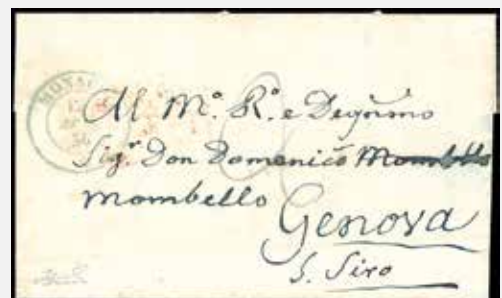 MONA
Al M.º R.º e Degñmo
Sig.r Don Domenico Mombello
Mombello
Genova
S. Siro